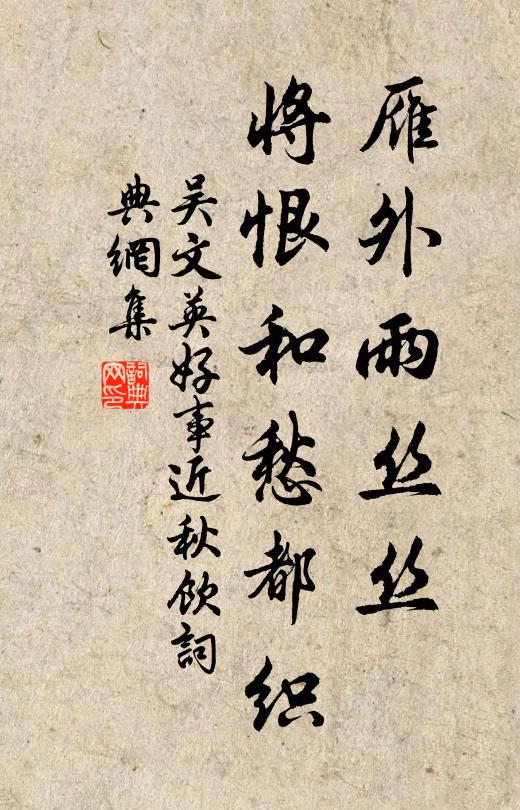 雁外雨丝丝
将恨和愁都织
吴文英好事近秋饮詞
典網集
詞典网印